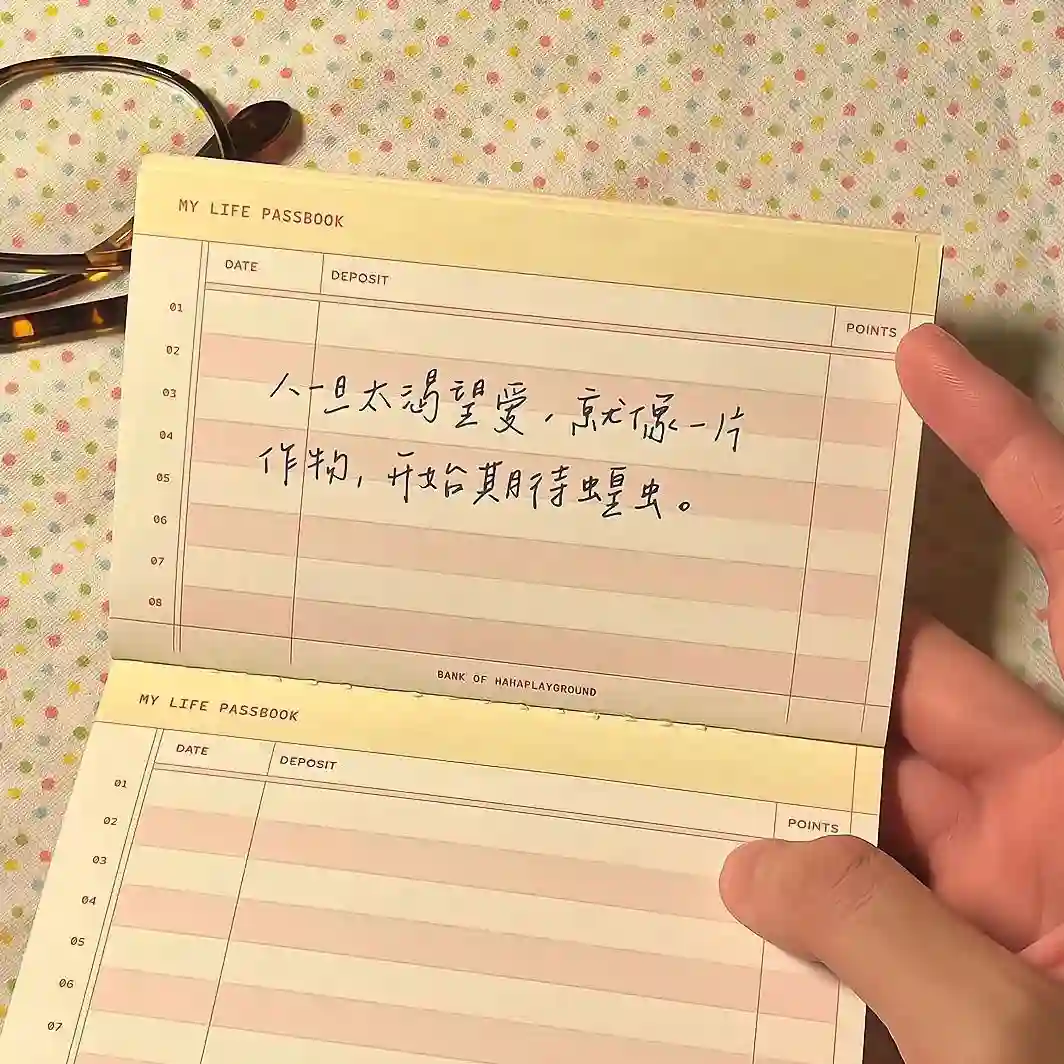 MY LIFE PASSBOOK
DATE DEPOSIT POINTS
01
02
03
04
05
06
07
08
人一旦太渴望爱，就像一片
作物，开始期待蝗虫。
BANK OF HAHAPLAYGROUND
MY LIFE PASSBOOK
DATE DEPOSIT POINTS
01
02
03
04
05
06
07